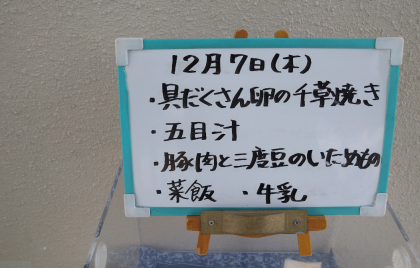 12月7日(木)
・具だくさん卵の千草焼き
・五目汁
・豚肉と三度豆のいためもの
・菜飯 ・牛乳